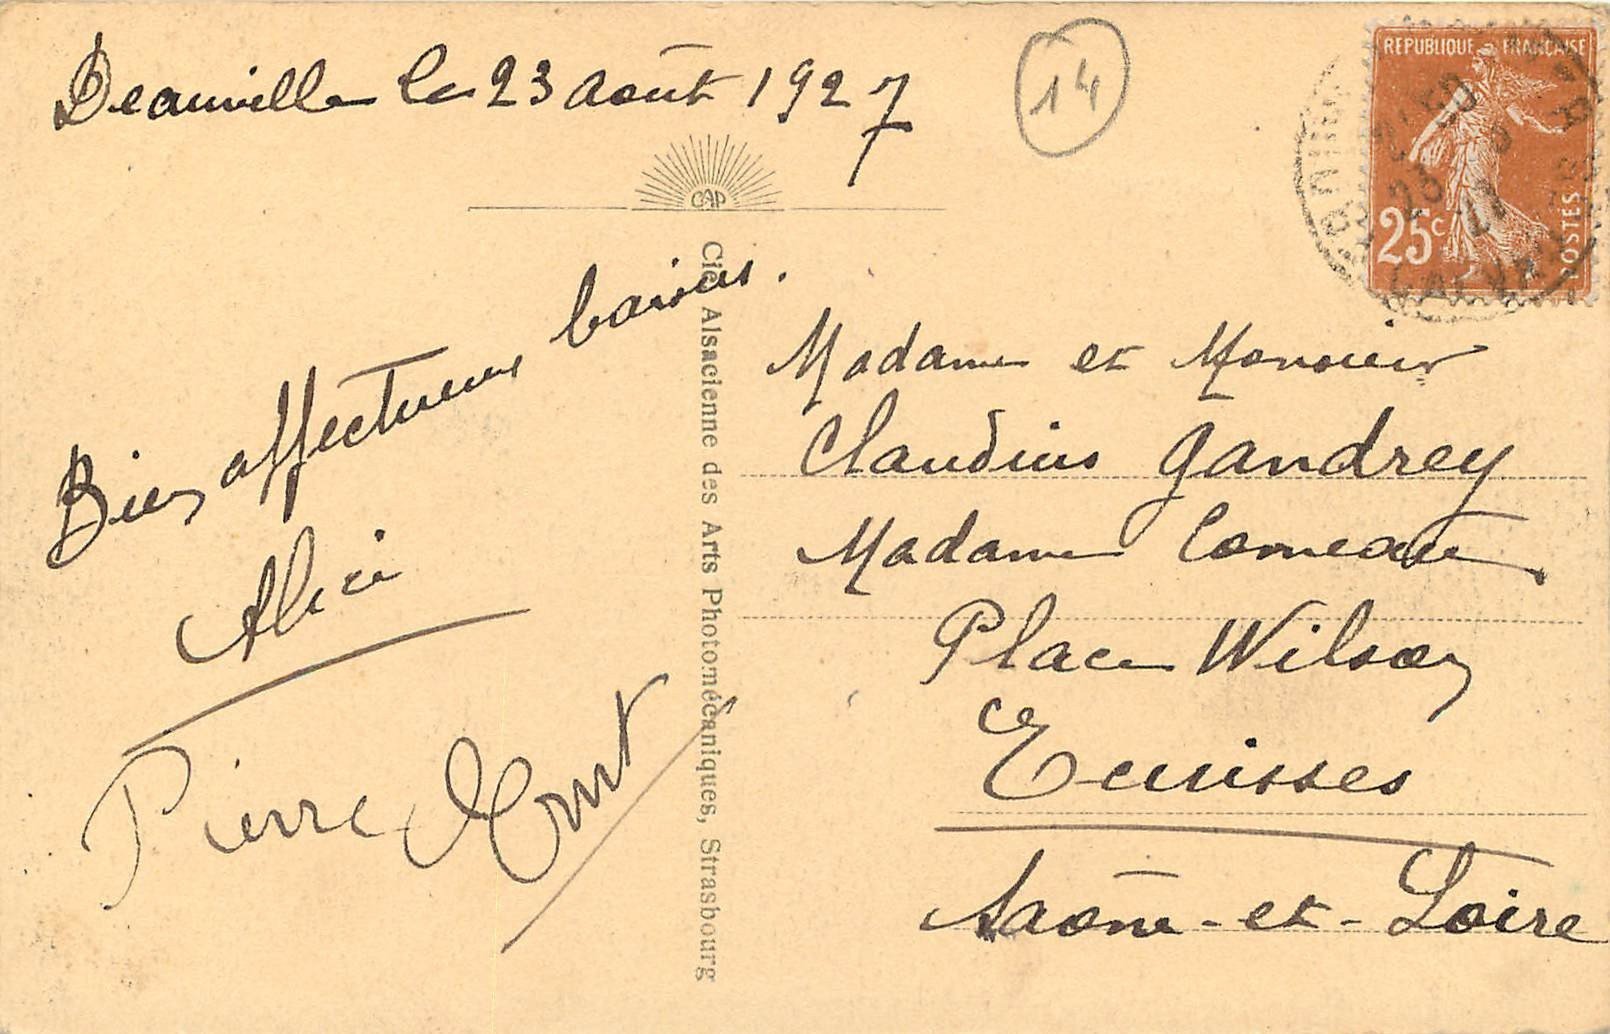 Deauville le 23 août 1927
14
REPUBLIQUE FRANCAISE
25c
POSTES
CAP
Cie. Alsacienne des Arts Photomécaniques, Strasbourg
Bien affectueux baisers.
Alice
Pierre Ernst
Madame et Monsieur
Claudius Gandrey
Madame Comeau
Place Wilson
Ecuisses
Saône-et-Loire